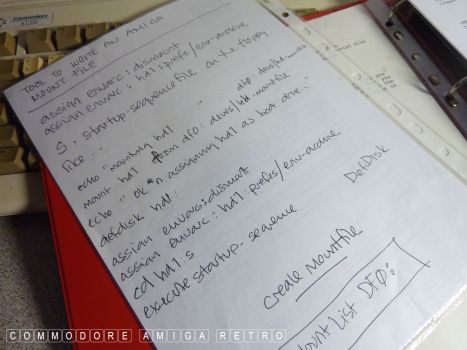 Commodore
A1200
TOOL TO WRITE AN AMIGA
MOUNT FILE
assign envarc: dismount
assign envarc: hd1:prefs/env-archive
S. startup.sequence file on the floppy
like..
echo "mounting hd1 "
mount hd1 from df0:devs/hd1-mountfile
echo "ok *n assigning hd1 as boot drive..
defdisk hd1:
assign envarc: dismount
assign envarc: hd1:prefs/env-archive
cd hd1:s
execute startup-sequence
DefDisk
create mountfile
Mount List DF0:
COMMODORE AMIGA RETRO